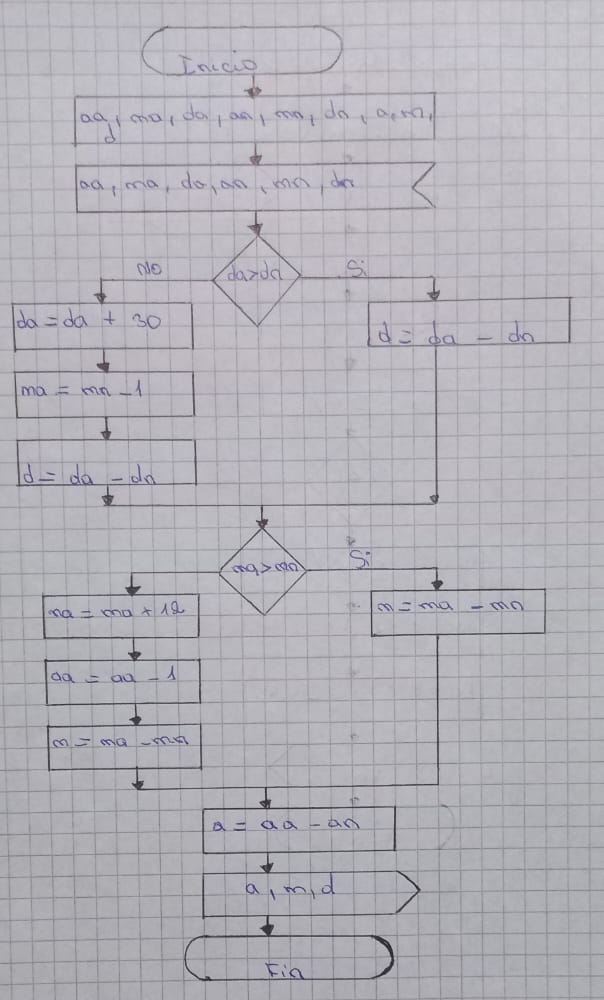 Inicio
aa, ma, da, an, mn, dn, a, m,
d
aa, ma, da, an, mn, dn
da>dn
No
Si
da = da + 30
d = da - dn
ma = mn - 1
d = da - dn
ma > mn
Si
ma = ma + 12
m = ma - mn
aa = aa - 1
m = ma - mn
a = aa - an
a, m, d
Fin